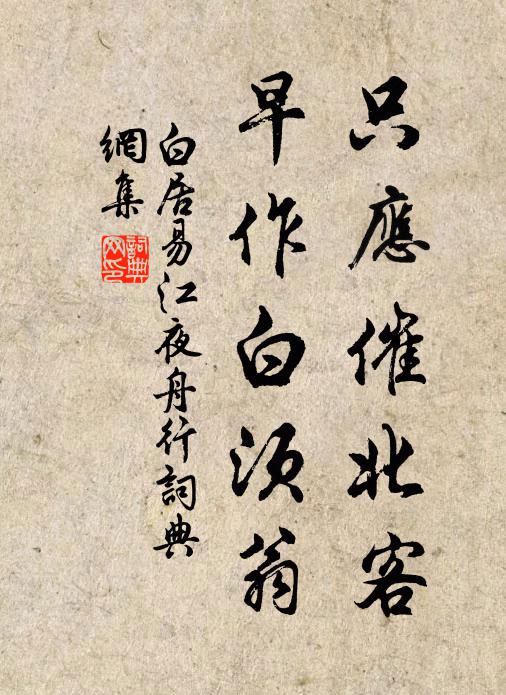 只應催北客
早作白須翁
白居易江夜舟行詞典
網集
詞典网印